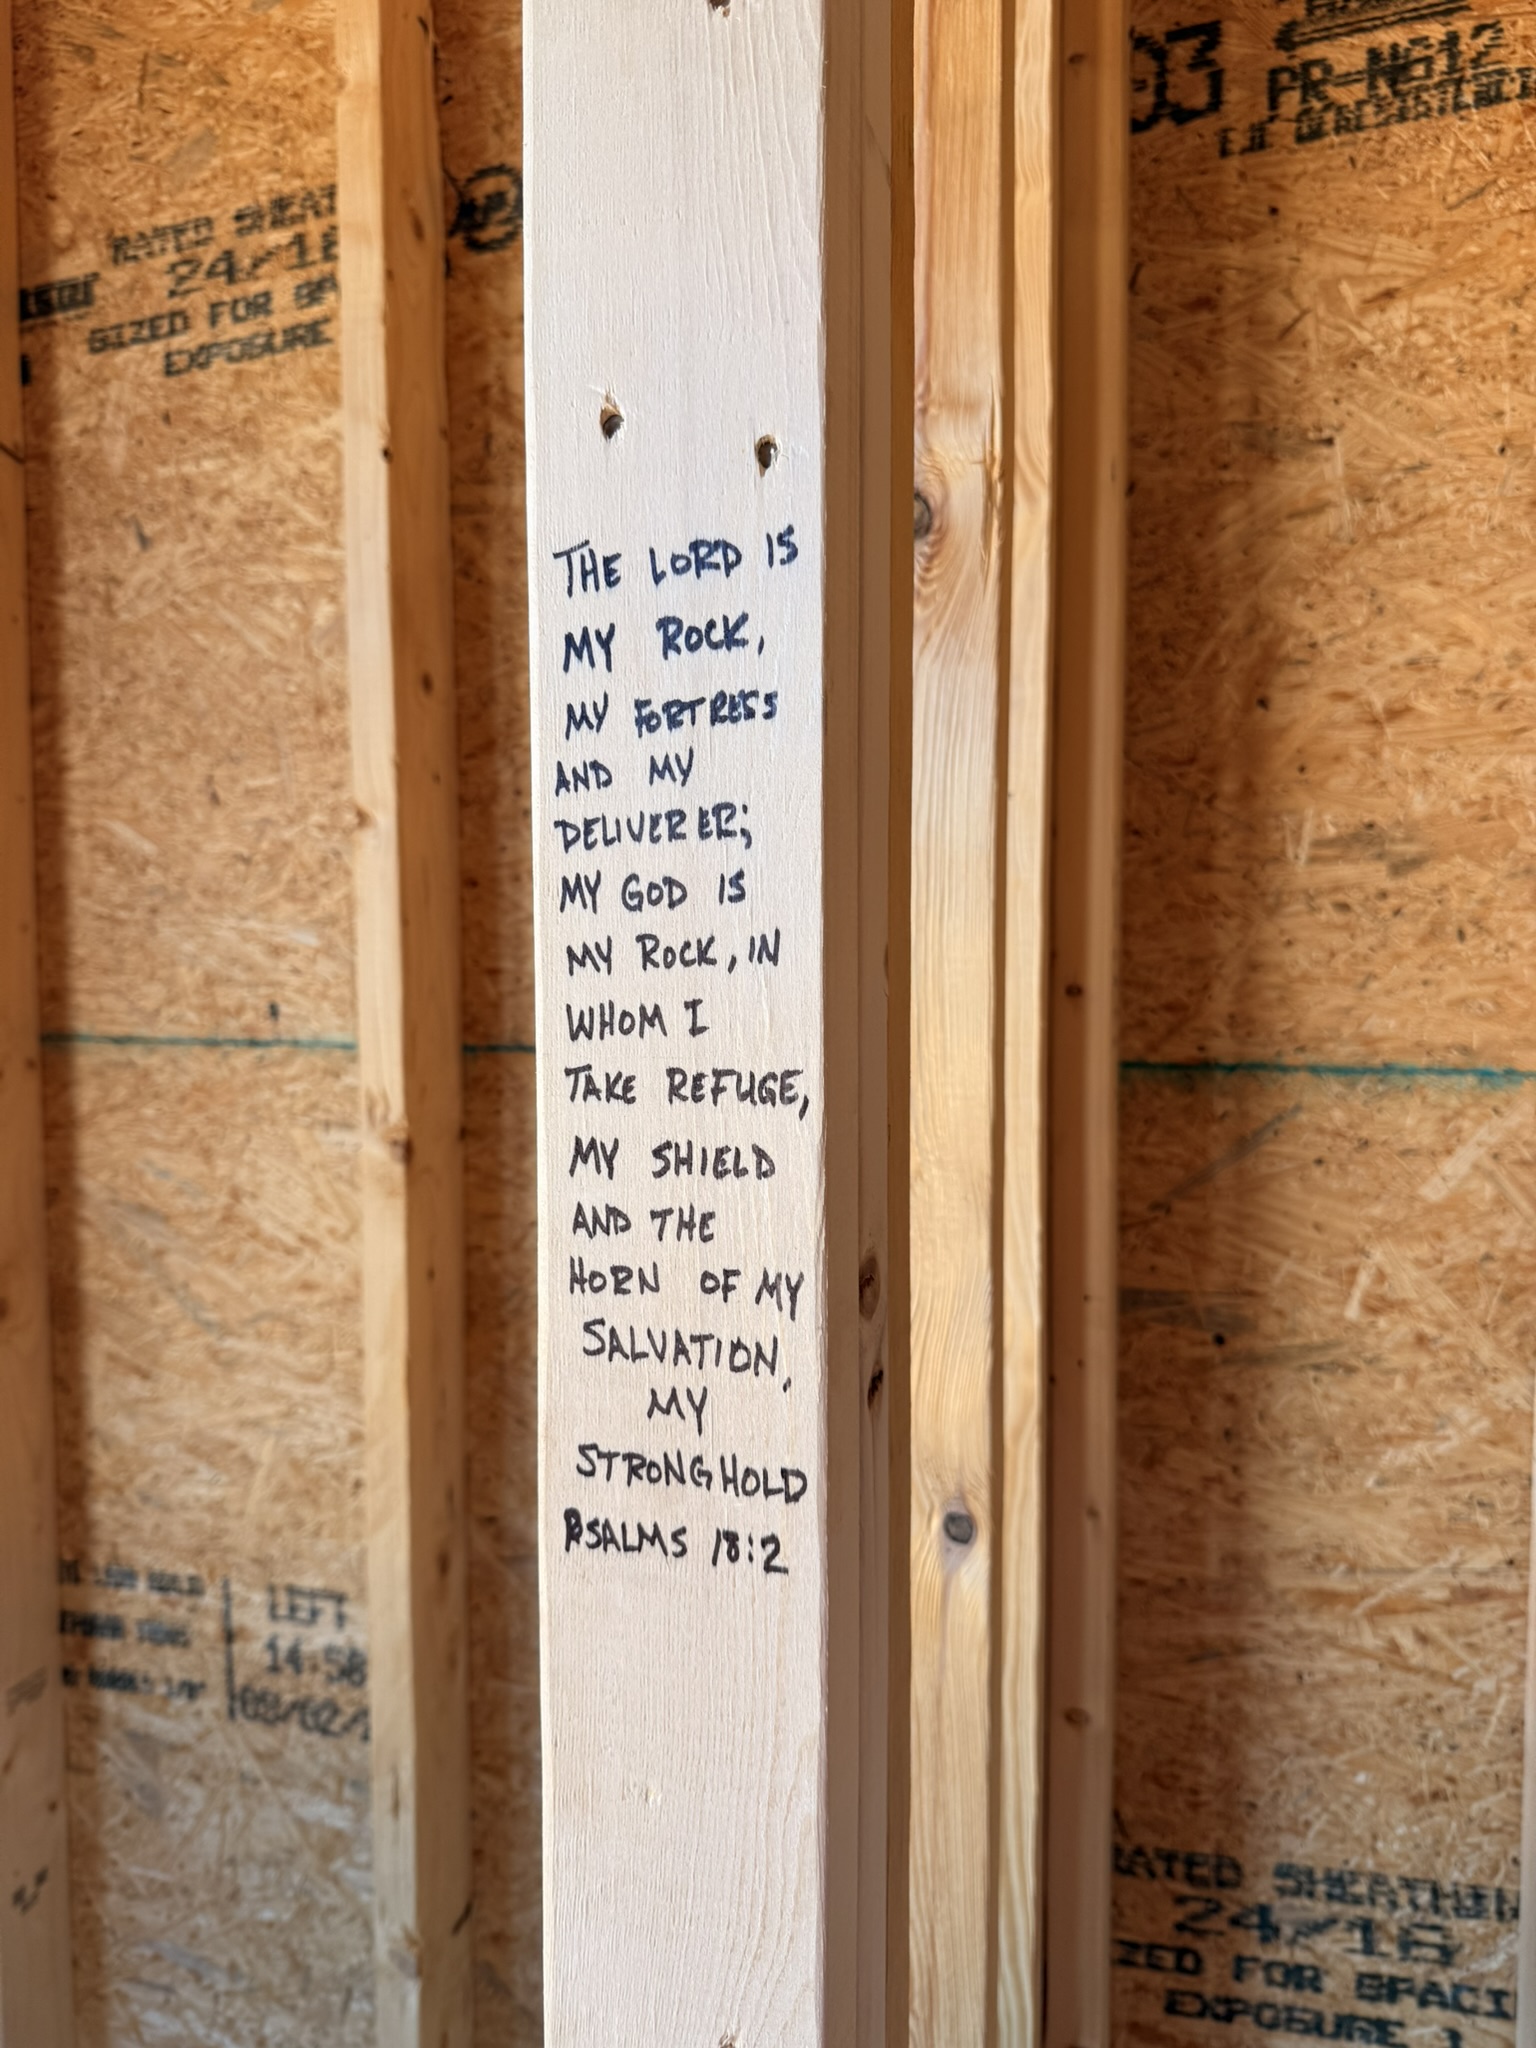 THE LORD IS
MY ROCK,
MY FORTRESS
AND MY
DELIVERER;
MY GOD IS
MY ROCK, IN
WHOM I
TAKE REFUGE,
MY SHIELD
AND THE
HORN OF MY
SALVATION,
MY
STRONGHOLD
PSALMS 18:2
RATED SHEAT
24/16
SIZED FOR SPA
EXPOSURE
LEFT
14:58
03
PR-N612
RATED SHEATHIN
24/16
ZED FOR SPACI
EXPOSURE 1